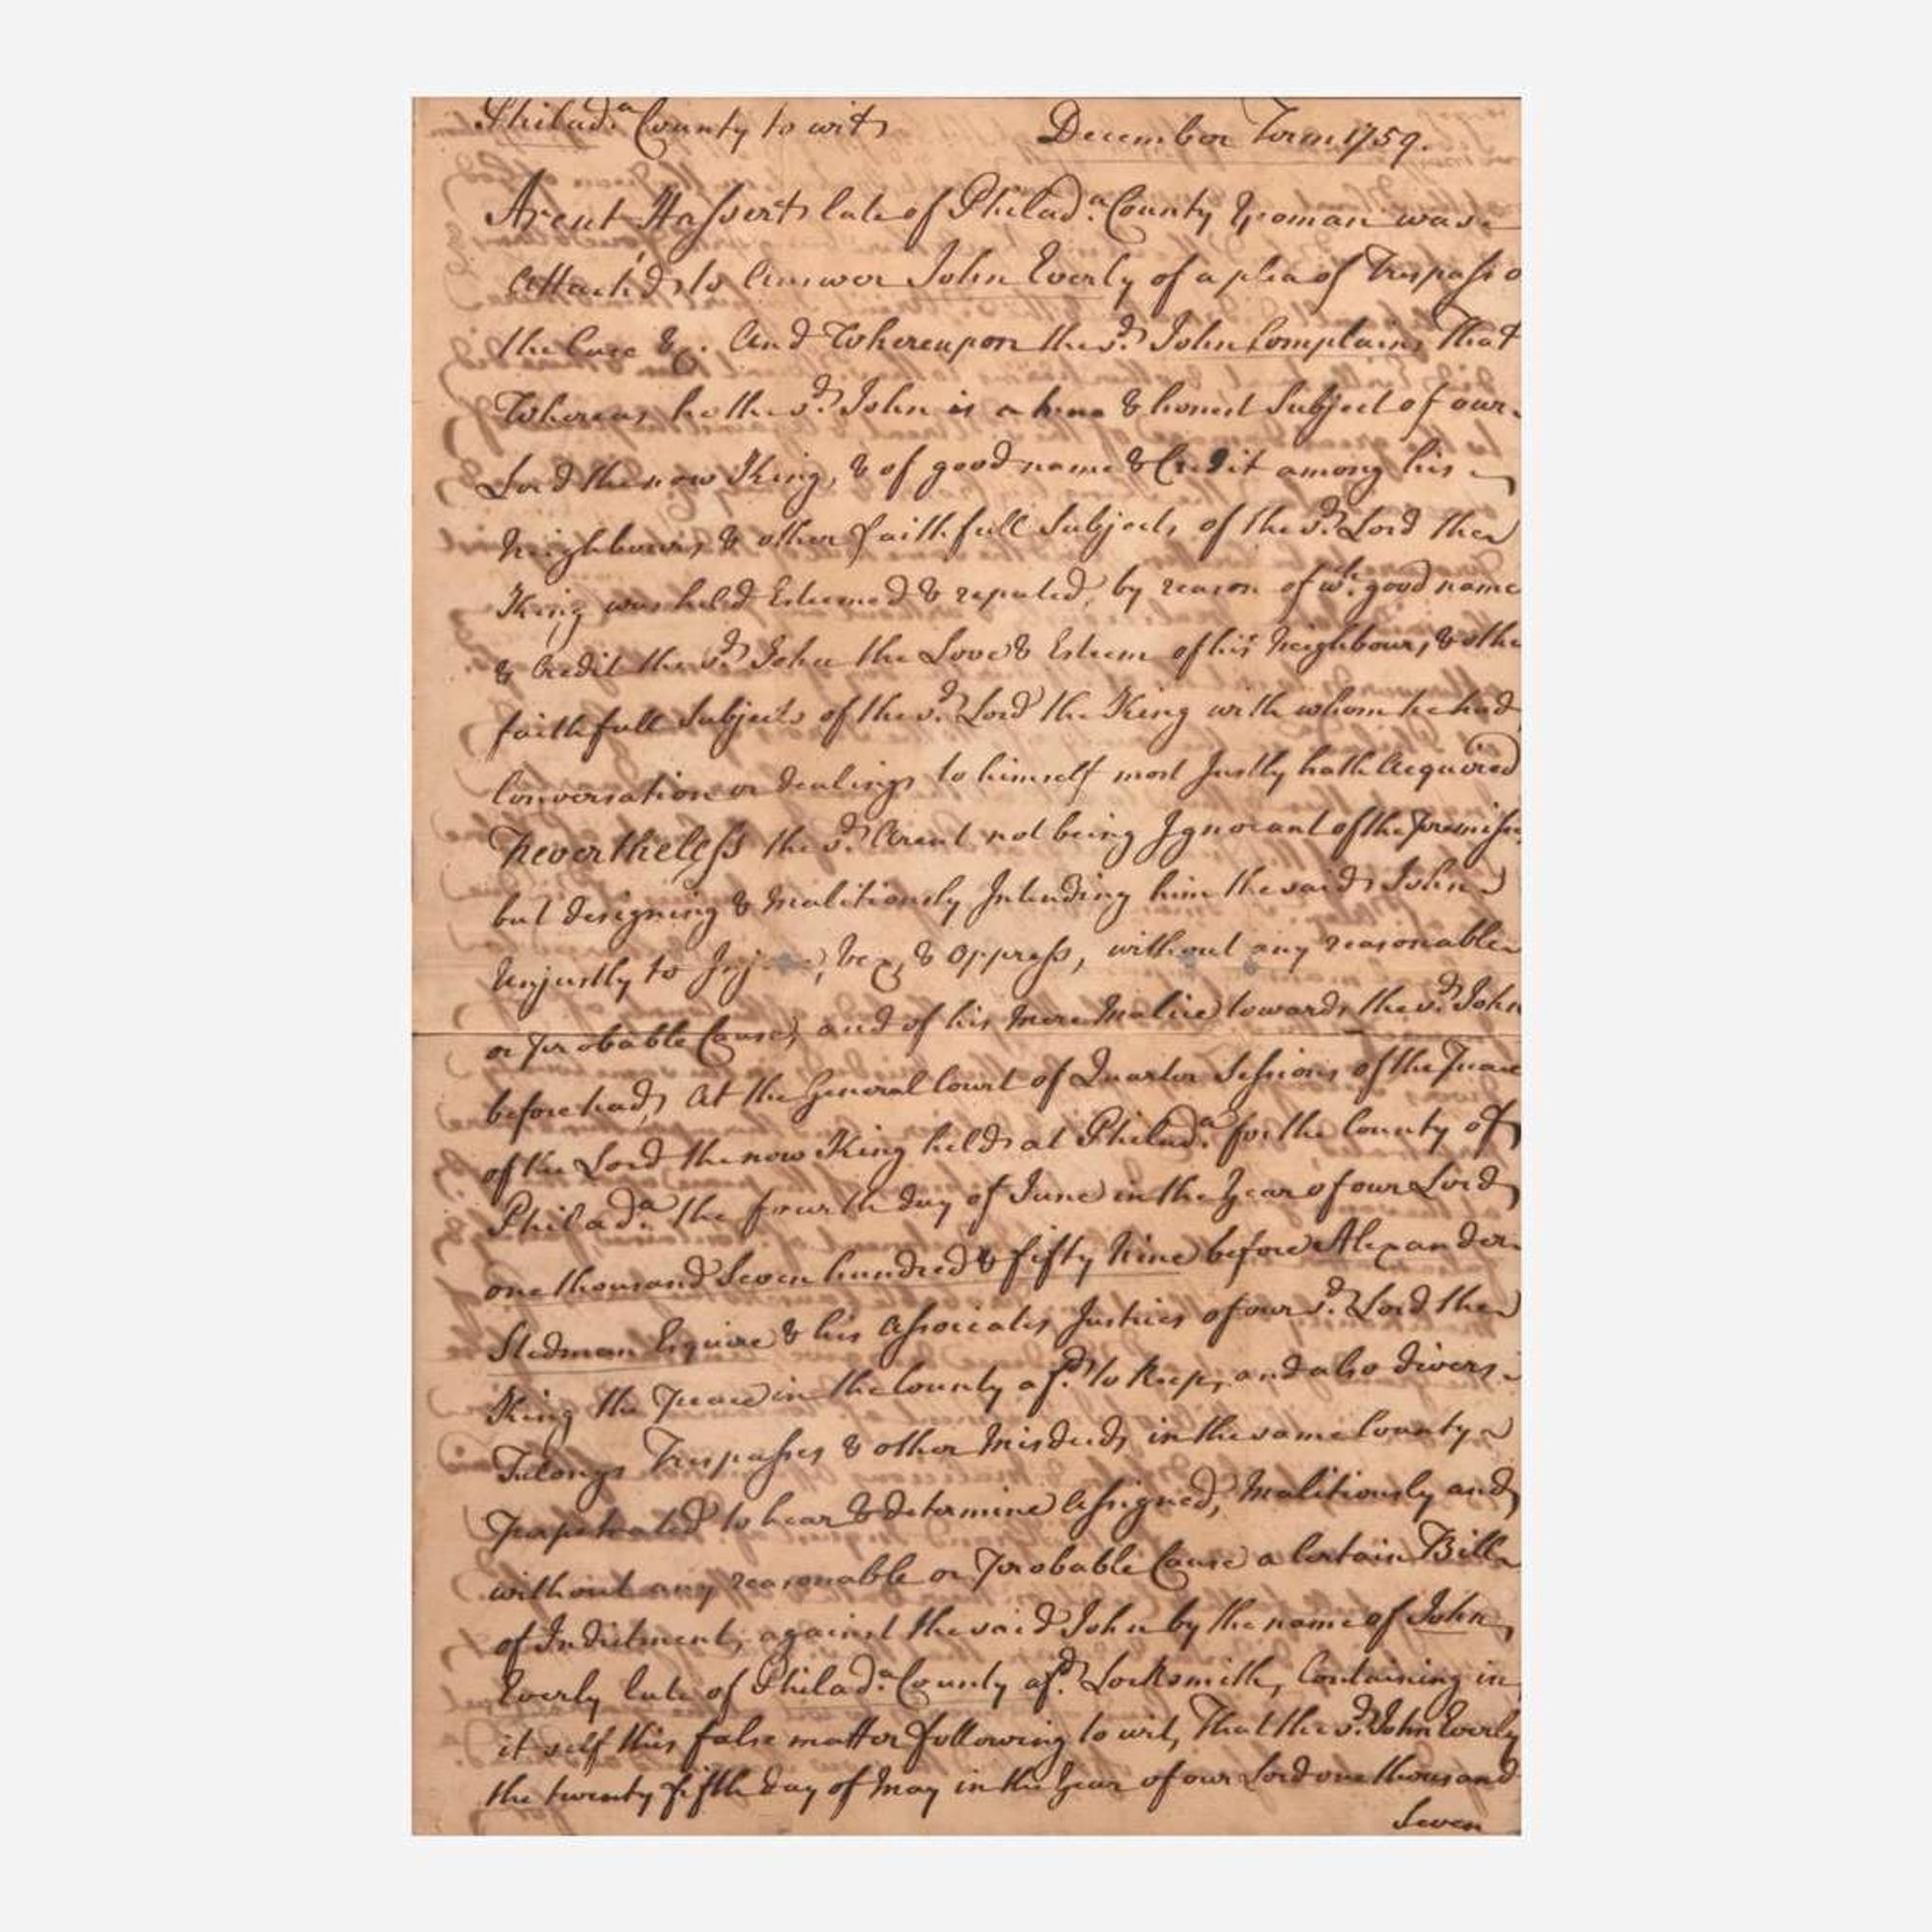 Philad.a County to wit December Term 1759.
Arent Hassert late of Philad.a County Yeoman was
Attach'd to Answer John Everly of a plea of Trespass o
the Case &c. And Whereupon the s.d John Complains That
Whereas he the s.d John is a true & honest Subject of our
Lord the now King, & of good name & Credit among his
Neighbours & other faithfull Subjects of the s.d Lord the
King was held Esteemed & reputed, by reason of w.ch good name
& Credit the s.d John the Love & Esteem of his Neighbours, & othe
faithfull Subjects of the s.d Lord the King with whom he had
Conversation or dealings to himself most Justly hath Acquired
Nevertheless the s.d Arent not being Ignorant of the Premises
but designing & Malitiously Intending him the said John
Unjustly to vex, & Oppress, without any reasonable
or Probable Cause, and of his Mere Malice towards the s.d John
before had, At the General Court of Quarter Sessions of the Peace
of the Lord the now King held at Philad.a for the County of
Philad.a the fourth day of June in the Year of our Lord
one thousand Seven hundred & fifty Nine before Alexander
Stedman Esquire & his Associates Justices of our s.d Lord the
King the Peace in the County af.d to Keep, and also divers
Felonys Trespasses & other Misdeeds in the same County
Perpetrated to hear & determine Assigned, Malitiously and
without any reasonable or Probable Cause a Certain Bill
of Indictment, against the said John by the name of John
Everly late of Philad.a County af.d Locksmith, Containing in
it self this false matter following to wit, That the s.d John Everly
the twenty fifth day of May in the Year of our Lord one thousand
Seven